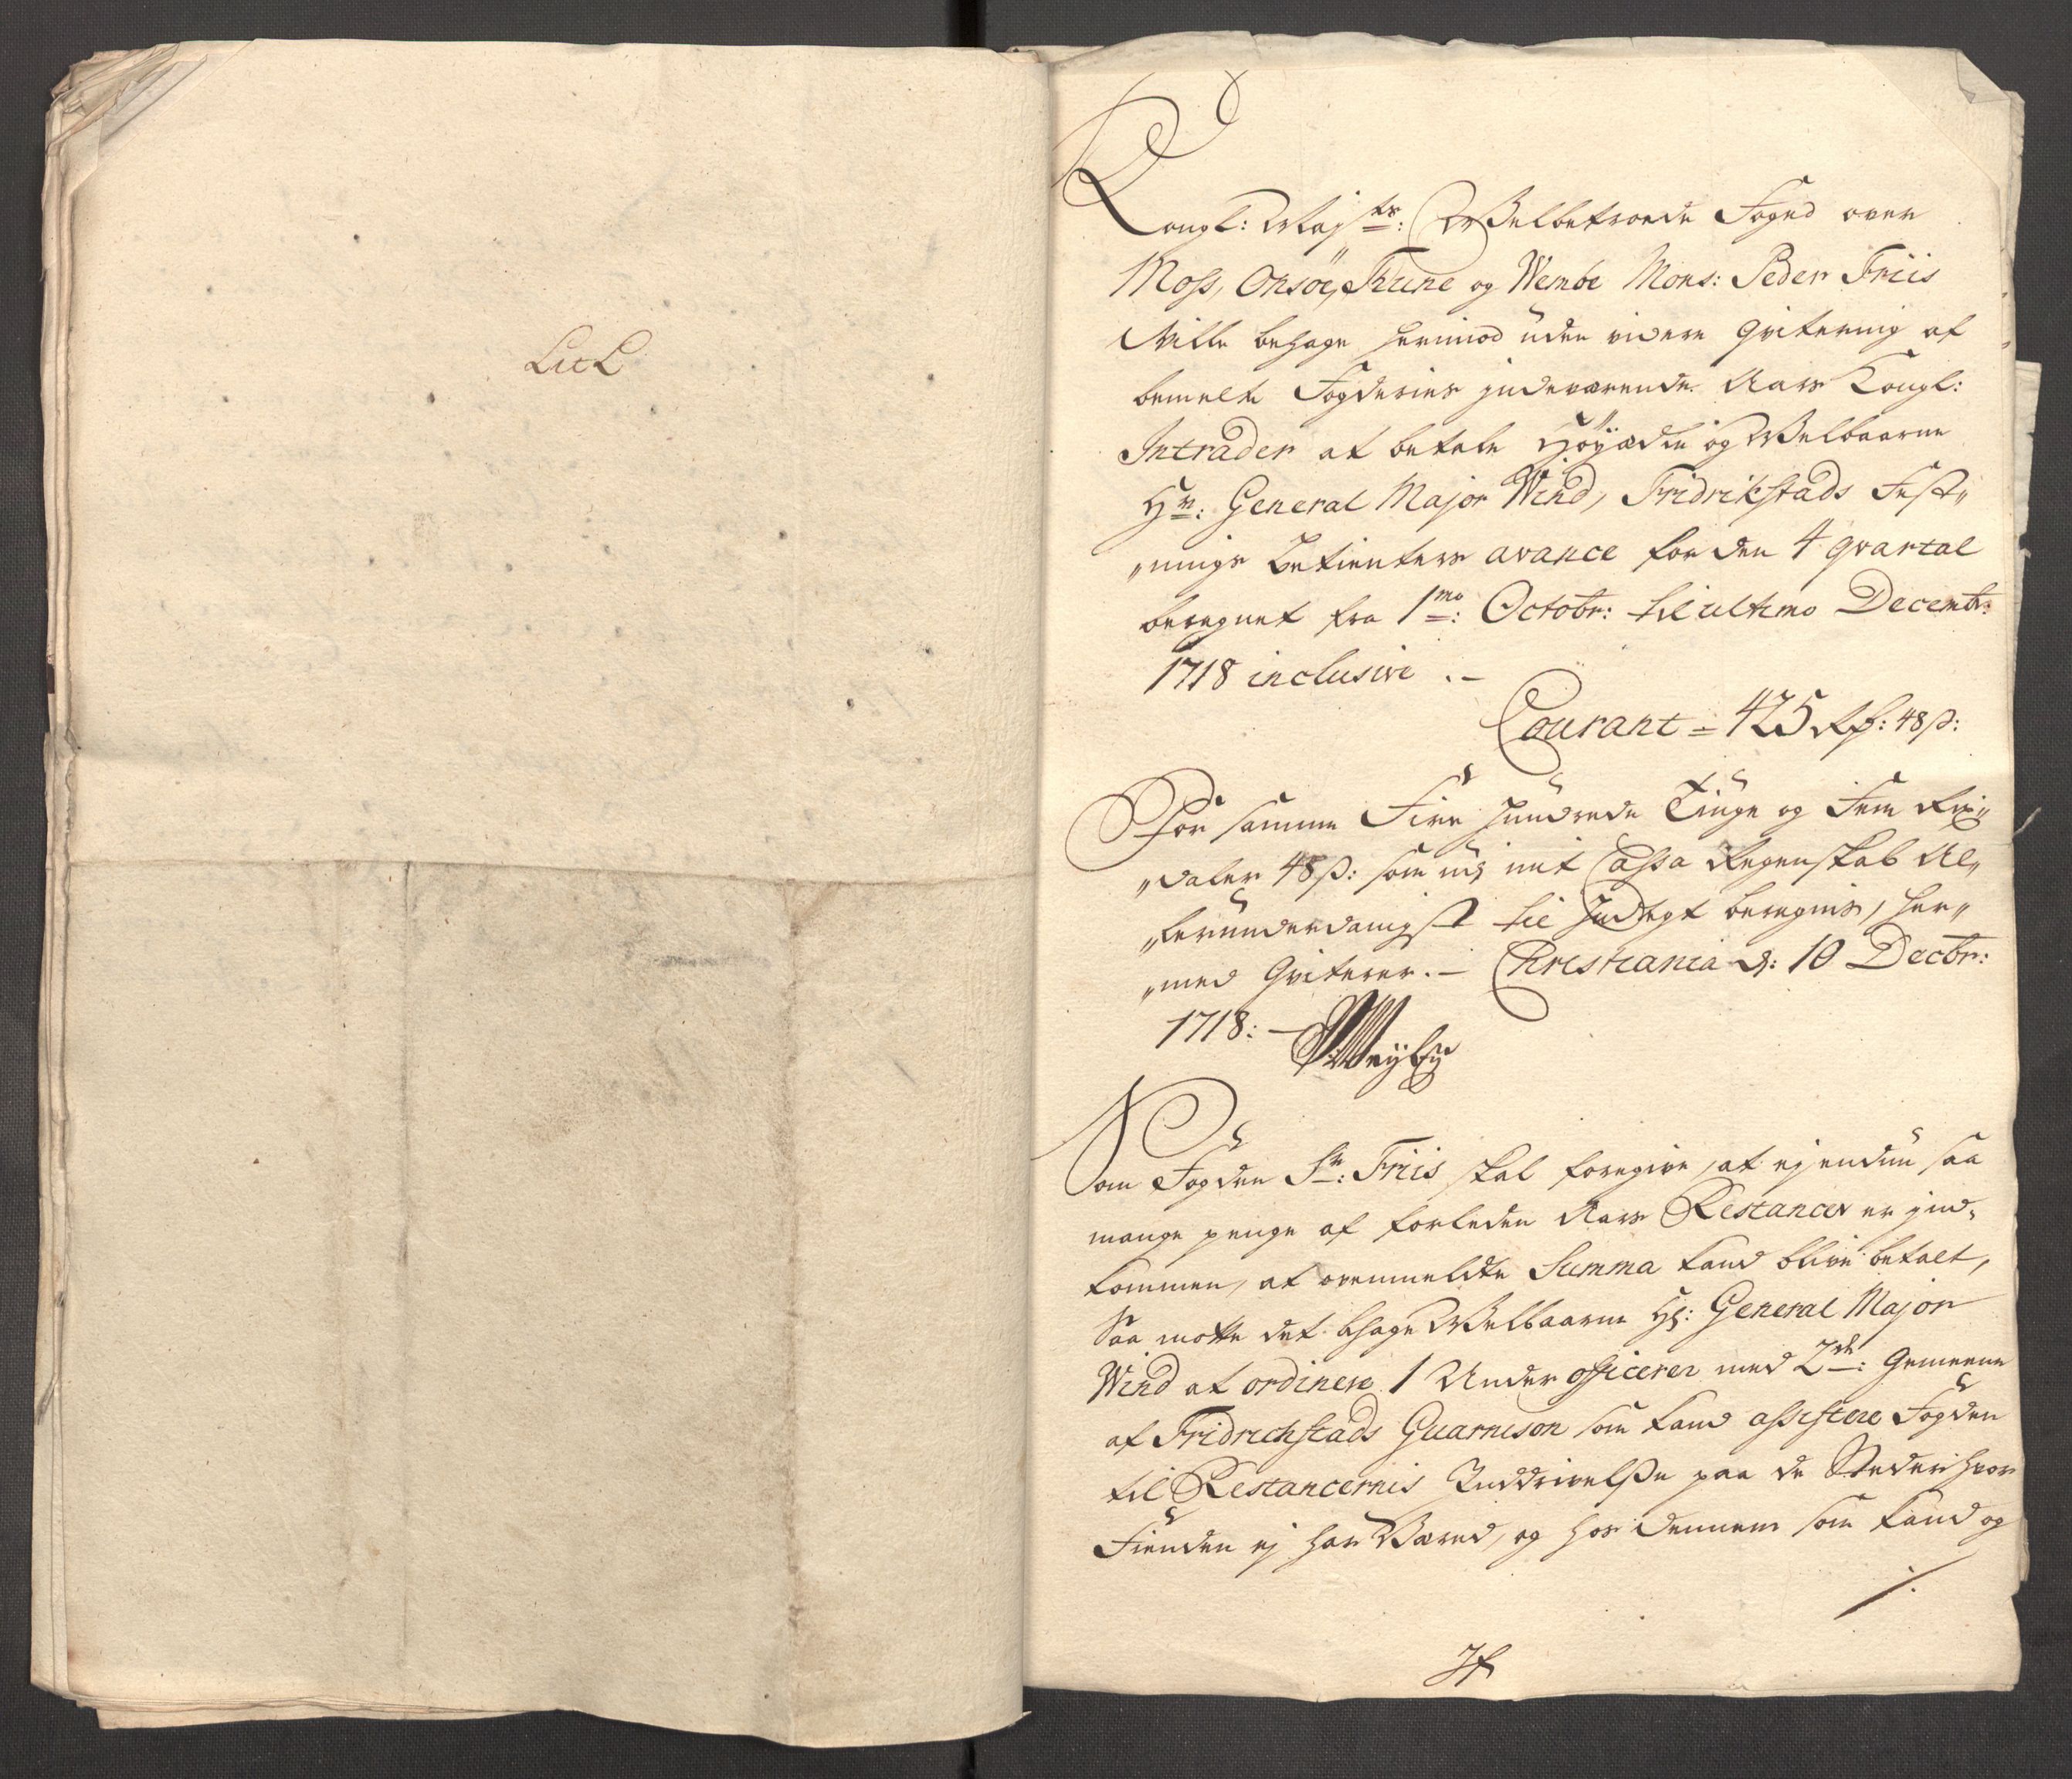 Lit L
Kongl: Mayts: Welbetroede Foged over
Moss, Onsöe, Thune og Wembe Mons: Peder Friis
Wille behage herimod uden videre Qvitering af
bemelte Fogderies indeværende Aars Kongl:
Intrader at betale Höyædle og Welbaarne
Hr: General Major Wind, Fridrikstads Fest„
„nings Betienters avance for den 4 qvartal
beregnet fra 1mo: Octobr: til ultimo Decembr:
1718 inclusive .-
Courant = 425 Rd: 48 s:
For samme Fire hundrede Tiuge og Fem Rix„
„daler 48 s: som udj mit Cassa Regenskab Al„
„lerunderdanigst til Indtegt beregnis, her„
„med Qviterer. – Christiania d: 10 Decbr:
1718: –
Som Fogden Sr: Friis skal foregive, at ej endnu saa
mange penge af forleden Aars Restancer er ind-
kommen, at ovenmeldte Summa kand blive betalt,
Saa motte det bhage Welbaarne Hr: General Major
Wind at ordinere 1 Under officerer med 2de: Gemeene
af Fridrichstads Guarnison som kand assistere Fogden
til Restancernis Inddrivelsse paa de Steder hvor
Fienden ej har Wæred, og hos dennem som kand og